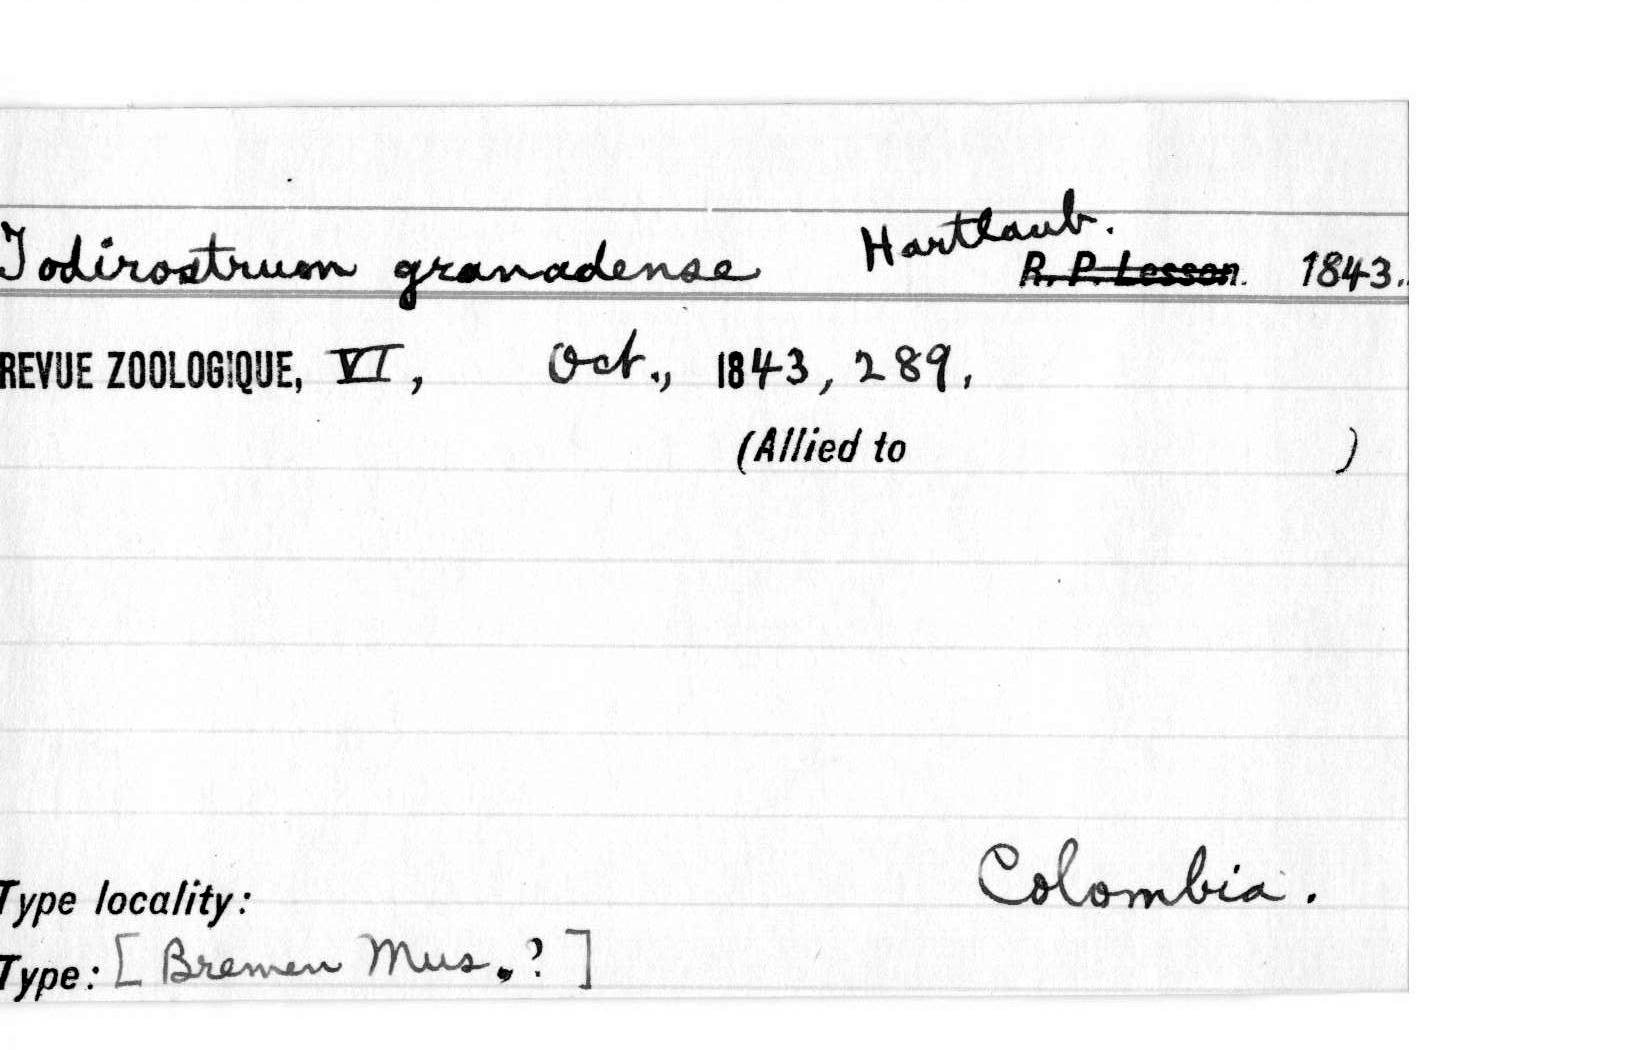 Todirostrum granadense Hartlaub.
R. P. Lesson. 1843.
REVUE ZOOLOGIQUE, VI, Oct., 1843, 289.
(Allied to )
Type locality: Colombia.
Type: [Bremen Mus.?]